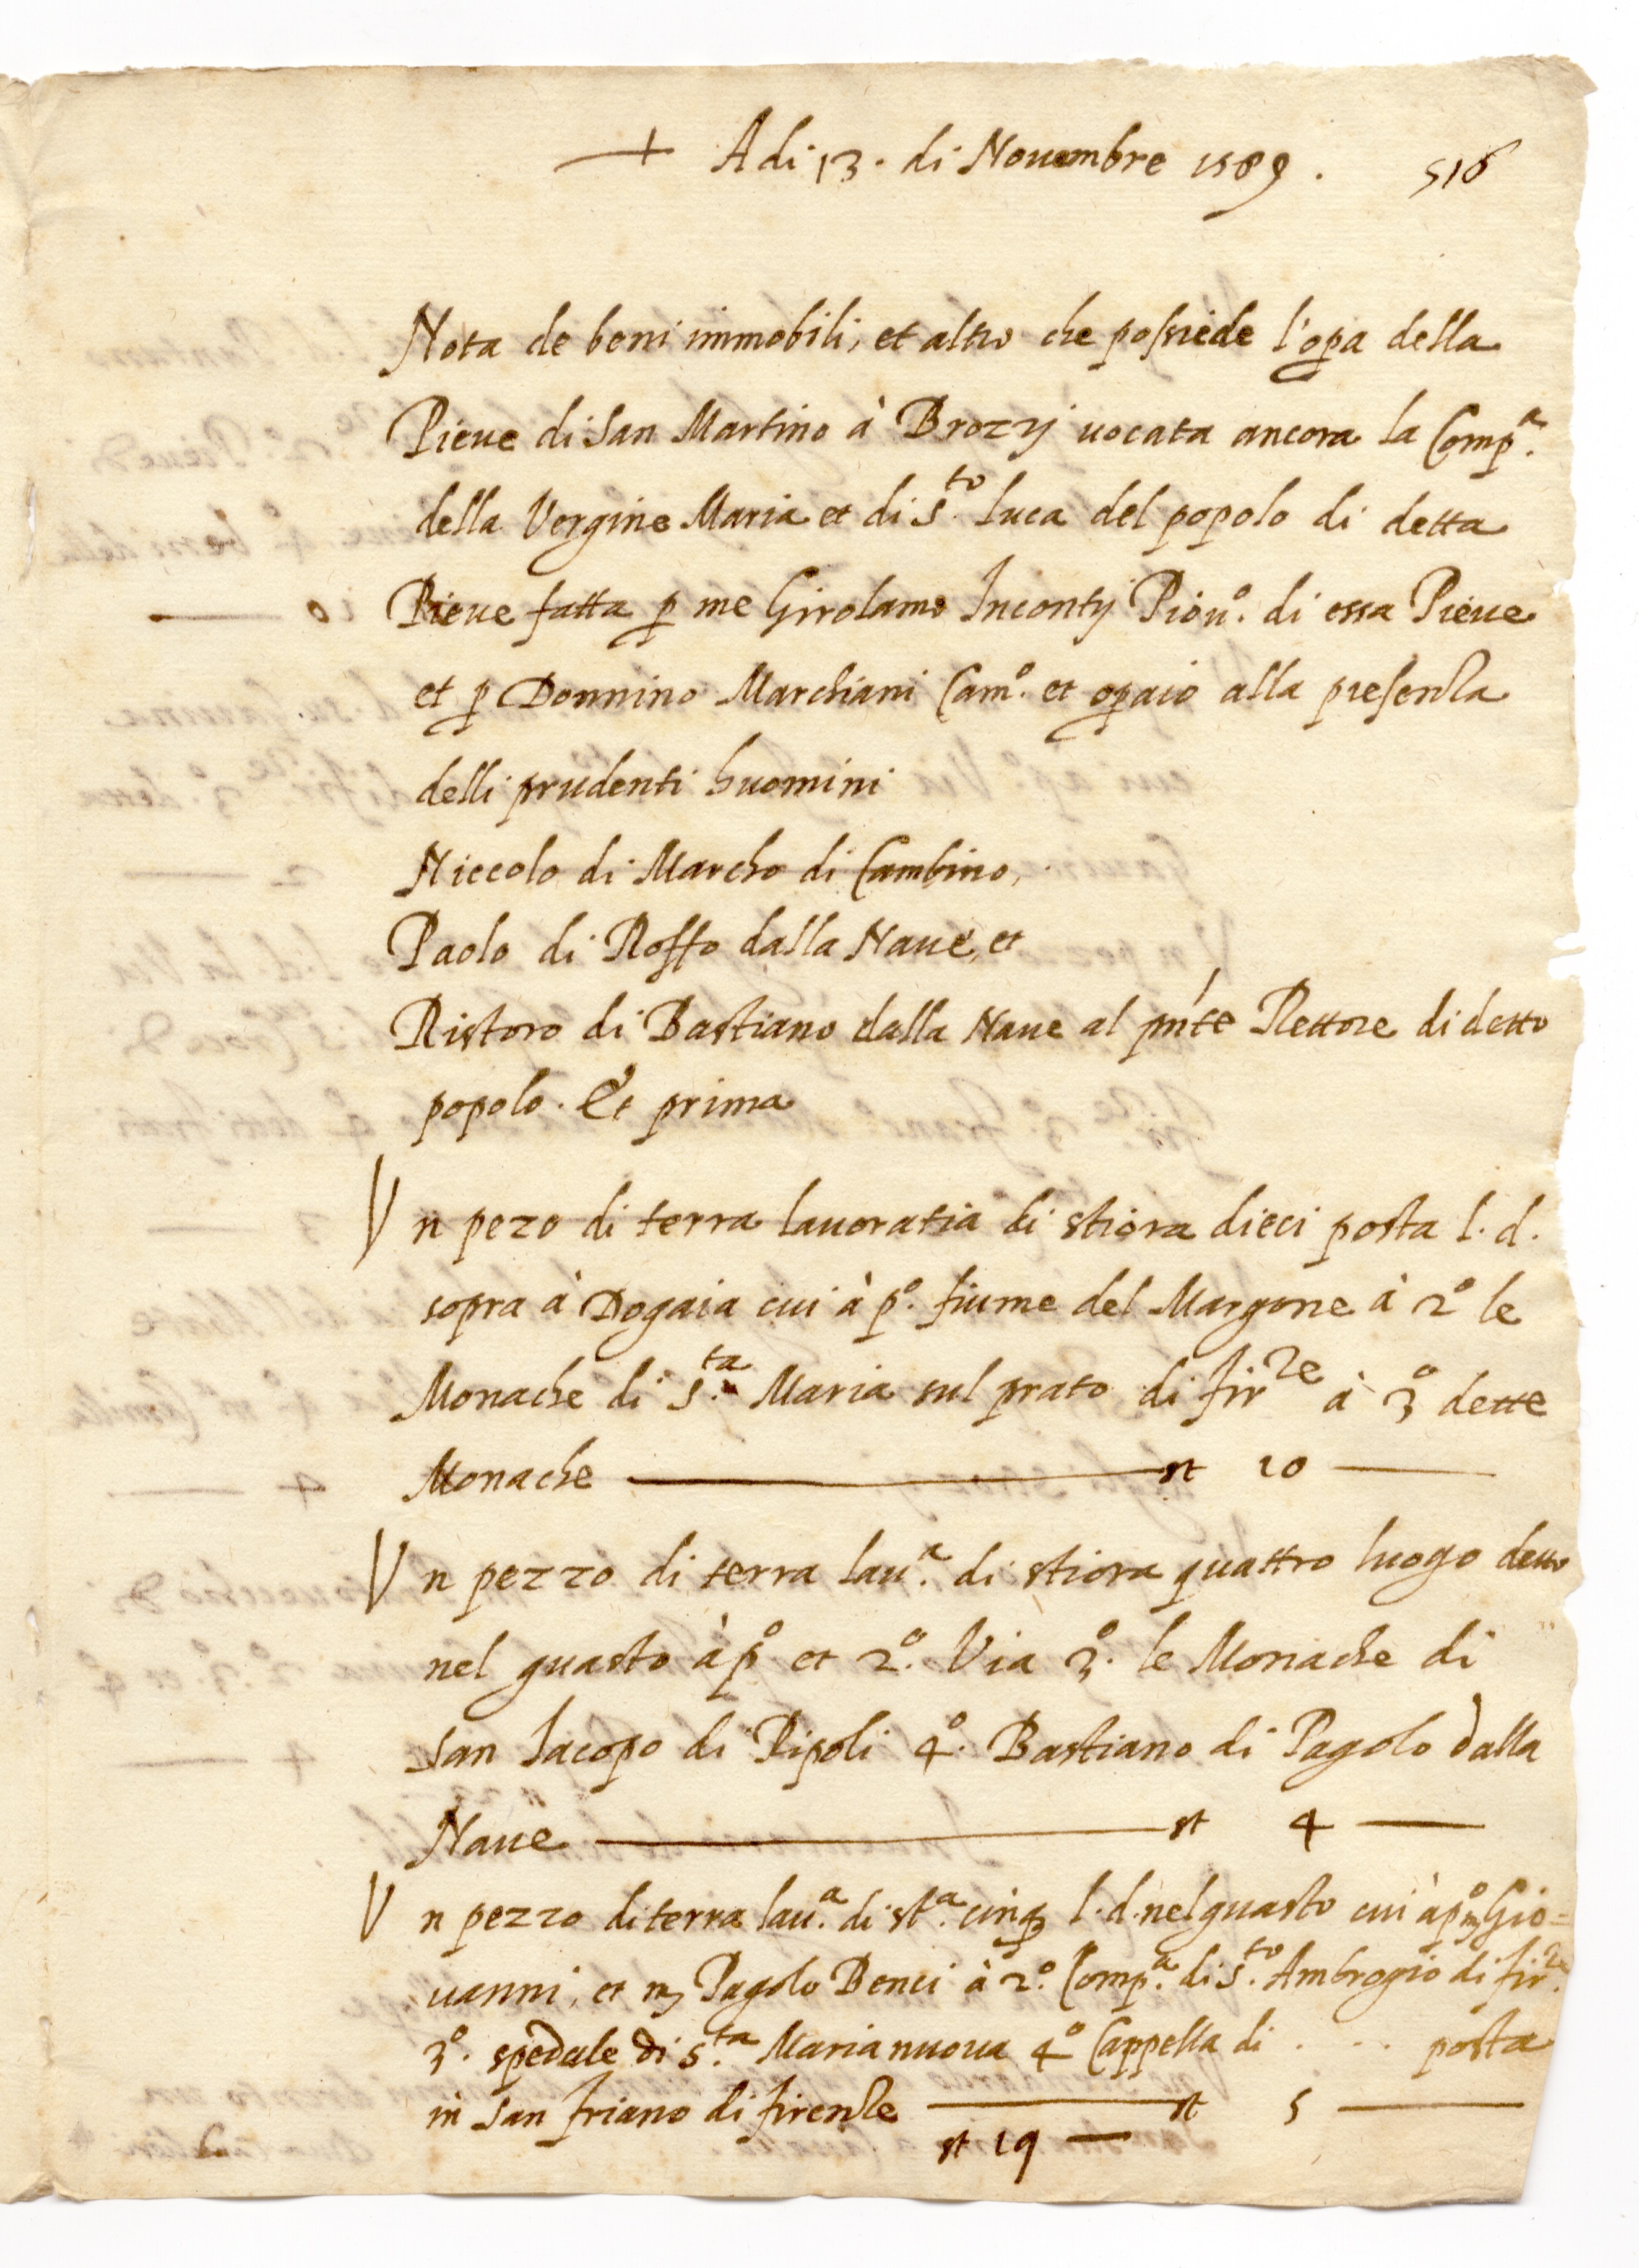 + Adi 13. di Nouembre 1589. 516
Nota de beni immobili, et altro che possiede l'opa della
Pieue di San Martino à Brozzj uocata ancora la Compª.
della Vergine Maria et di S.to Luca del popolo di detta
Pieue fatta p me Girolamo Incontrj Piouº. di essa Pieue
et p Donnino Marchiani Camº. et opaio alla presenza
delli prudenti huomini
Niccolo di Marcho di Cambino,
Paolo di Rosso dalla Naue, et
Ristoro di Bastiano dalla Naue al pn'te Rettore di detto
popolo. Et prima
Vn pezo di terra lauoratia di stiora dieci posta l. d.
sopra à Dogaia cui à pº. fiume del Margone à 2º le
Monache di S.ta Maria sul prato di fir.ze à 3º dette
Monache ——— st 10 —
Vn pezzo di terra lau.ª di stiora quattro luogo detto
nel guasto à pº et 2º. Via 3º. le Monache di
San Iacopo di Ripoli 4º. Bastiano di Pagolo dalla
Naue ——— st 4 —
Vn pezzo di terra lau.ª di st.ª cinq l. d. nel guasto cui à pº m Gio=
uanni, et m Pagolo Benci à 2º. Comp.ª di S.to Ambrogio di fir.ze
3º. spedale di S.ta Maria nuoua 4º Cappella di . . . posta
in San friano di firenze ——— st 5 —
st 19 —